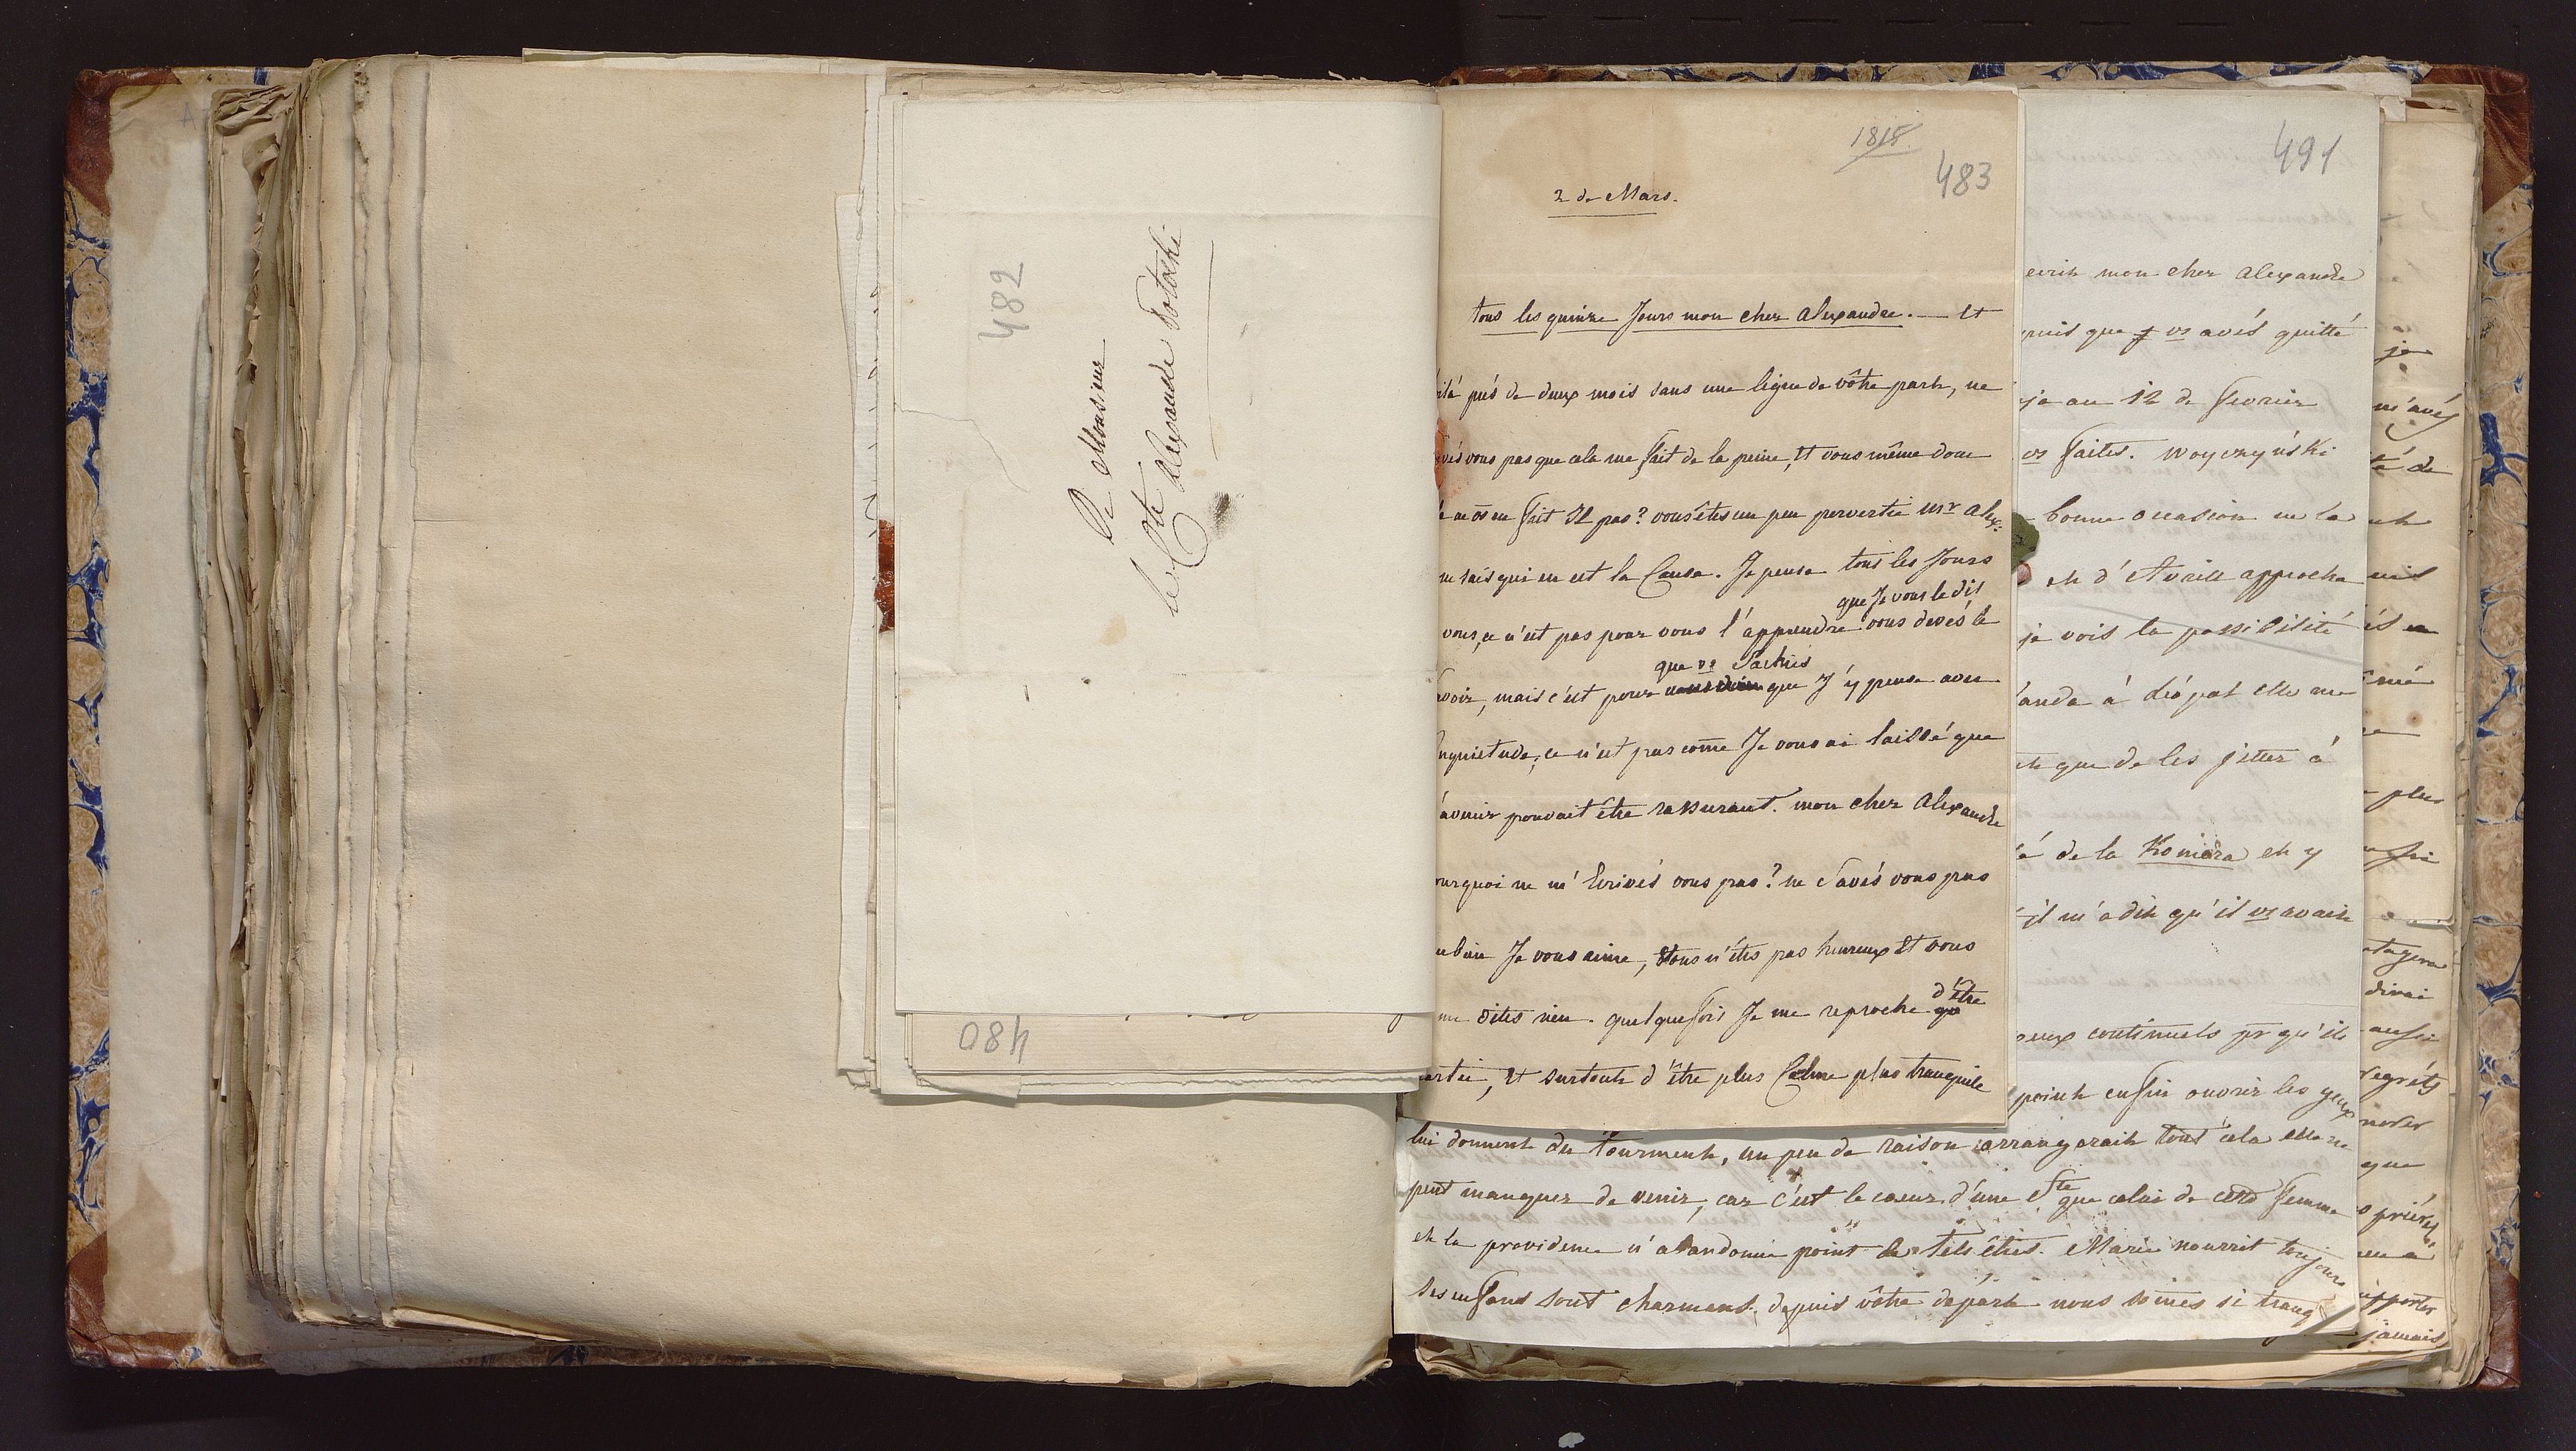 482
A Monsieur
le Cte Alexandre Potocki
480
1818.
483
2 de Mars.
tous les quinze Jours mon cher Alexandre. — Et
près de deux mois sans une ligne de vôtre part, ne
vous pas que cela me fait de la peine, Et vous même donc
en fait Il pas? vous êtes un peu pervertie Mr Alex:
ne sais qui en est la Cause. Je pense tous les Jours
que Je vous le dis
vous, ce n'est pas pour vous l'apprendre vous devés le
que vs Sachiés
avoir, mais c'est pour que J'y pense avec
nquietude, ce n'est pas come Je vous ai laissé que
avenir pouvait être rassurant. mon cher Alexandre
ourquoi ne m'Ecrivés vous pas? ne Savés vous pas
Je vous aime, Vous n'êtes pas heureux Et vous
d'être
me dites rien. quelquefois Je me reproche
artie, Et surtout d'être plus Calme plus tranquile
491
ecrit mon cher Alexandre
puis que vs avés quitté
ja au 12 de Fevrier
vs faites. Woyczyński
bonne occasion ne la
et d'Avrille approche
je vois la possibilité
anda à dépot elle me
que de les jetter à
é de la Koniera et y
il m'a dit qu'il vs avait
eux continuels pr qu'il
point enfin ouvrir les yeux
lui donnent du tourment, un peu de raison arrangerait tout cela elle ne
peut manquer de venir, car c'est le coeur d'une que celui de cette femme
et la providence n'abandonne point de tels êtres. Marie nourrit toujours
ses enfans sont charmans, depuis vôtre départ nous somes si tranq
je
m'avés
té de
plus
divai
aussi
regrèts
que
prières
apporter
jamais